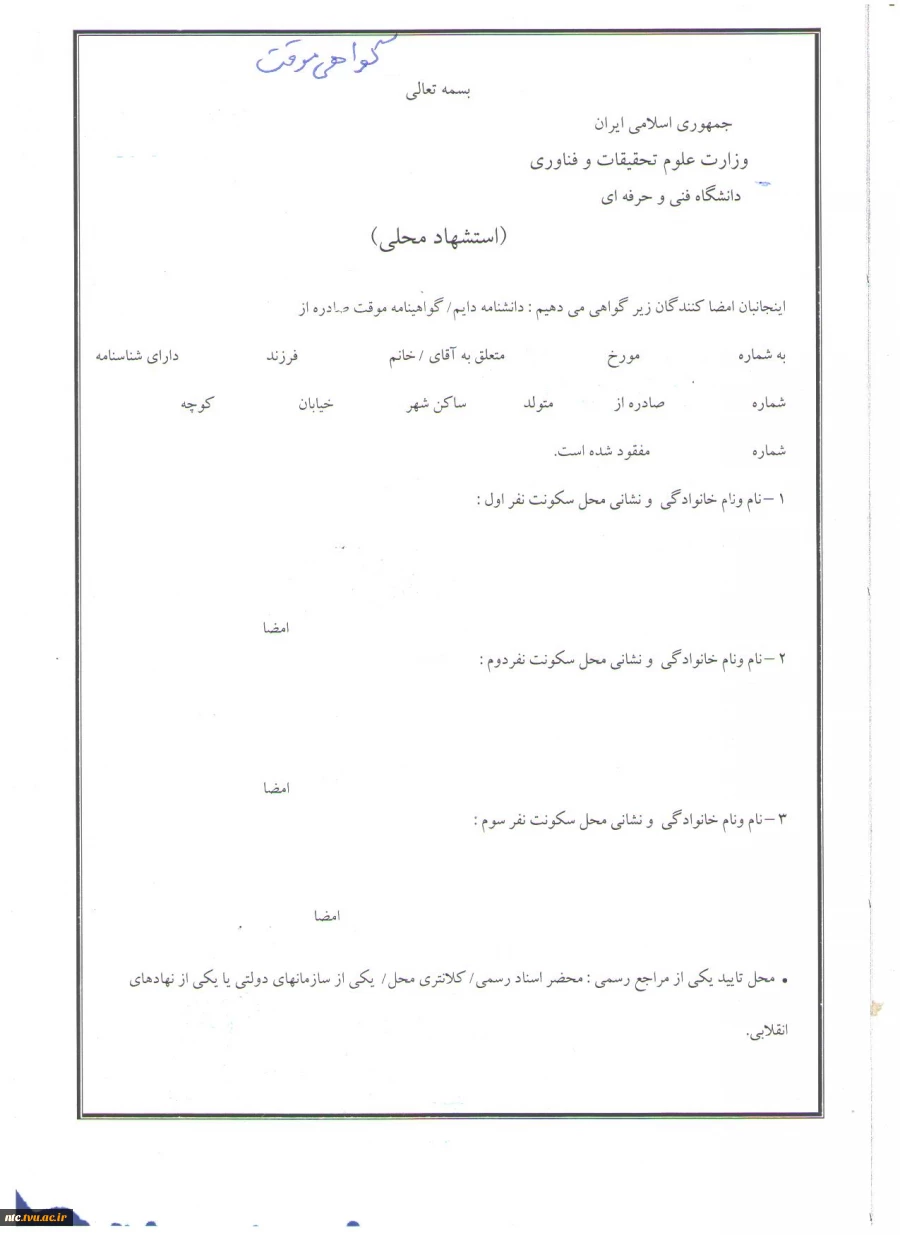 گواهی موقت
بسمه تعالی
جمهوری اسلامی ایران
وزارت علوم تحقیقات و فناوری
دانشگاه فنی و حرفه ای
(استشهاد محلی)
اینجانبان امضا کنندگان زیر گواهی می دهیم : دانشنامه دایم/ گواهینامه موقت صادره از
به شماره مورخ متعلق به آقای / خانم فرزند دارای شناسنامه
شماره صادره از متولد ساکن شهر خیابان کوچه
شماره مفقود شده است.
۱ –نام ونام خانوادگی و نشانی محل سکونت نفر اول :
امضا
۲ –نام ونام خانوادگی و نشانی محل سکونت نفردوم :
امضا
۳ –نام ونام خانوادگی و نشانی محل سکونت نفر سوم :
امضا
• محل تایید یکی از مراجع رسمی : محضر اسناد رسمی/ کلانتری محل/ یکی از سازمانهای دولتی یا یکی از نهادهای
انقلابی.
ntc.tvu.ac.ir